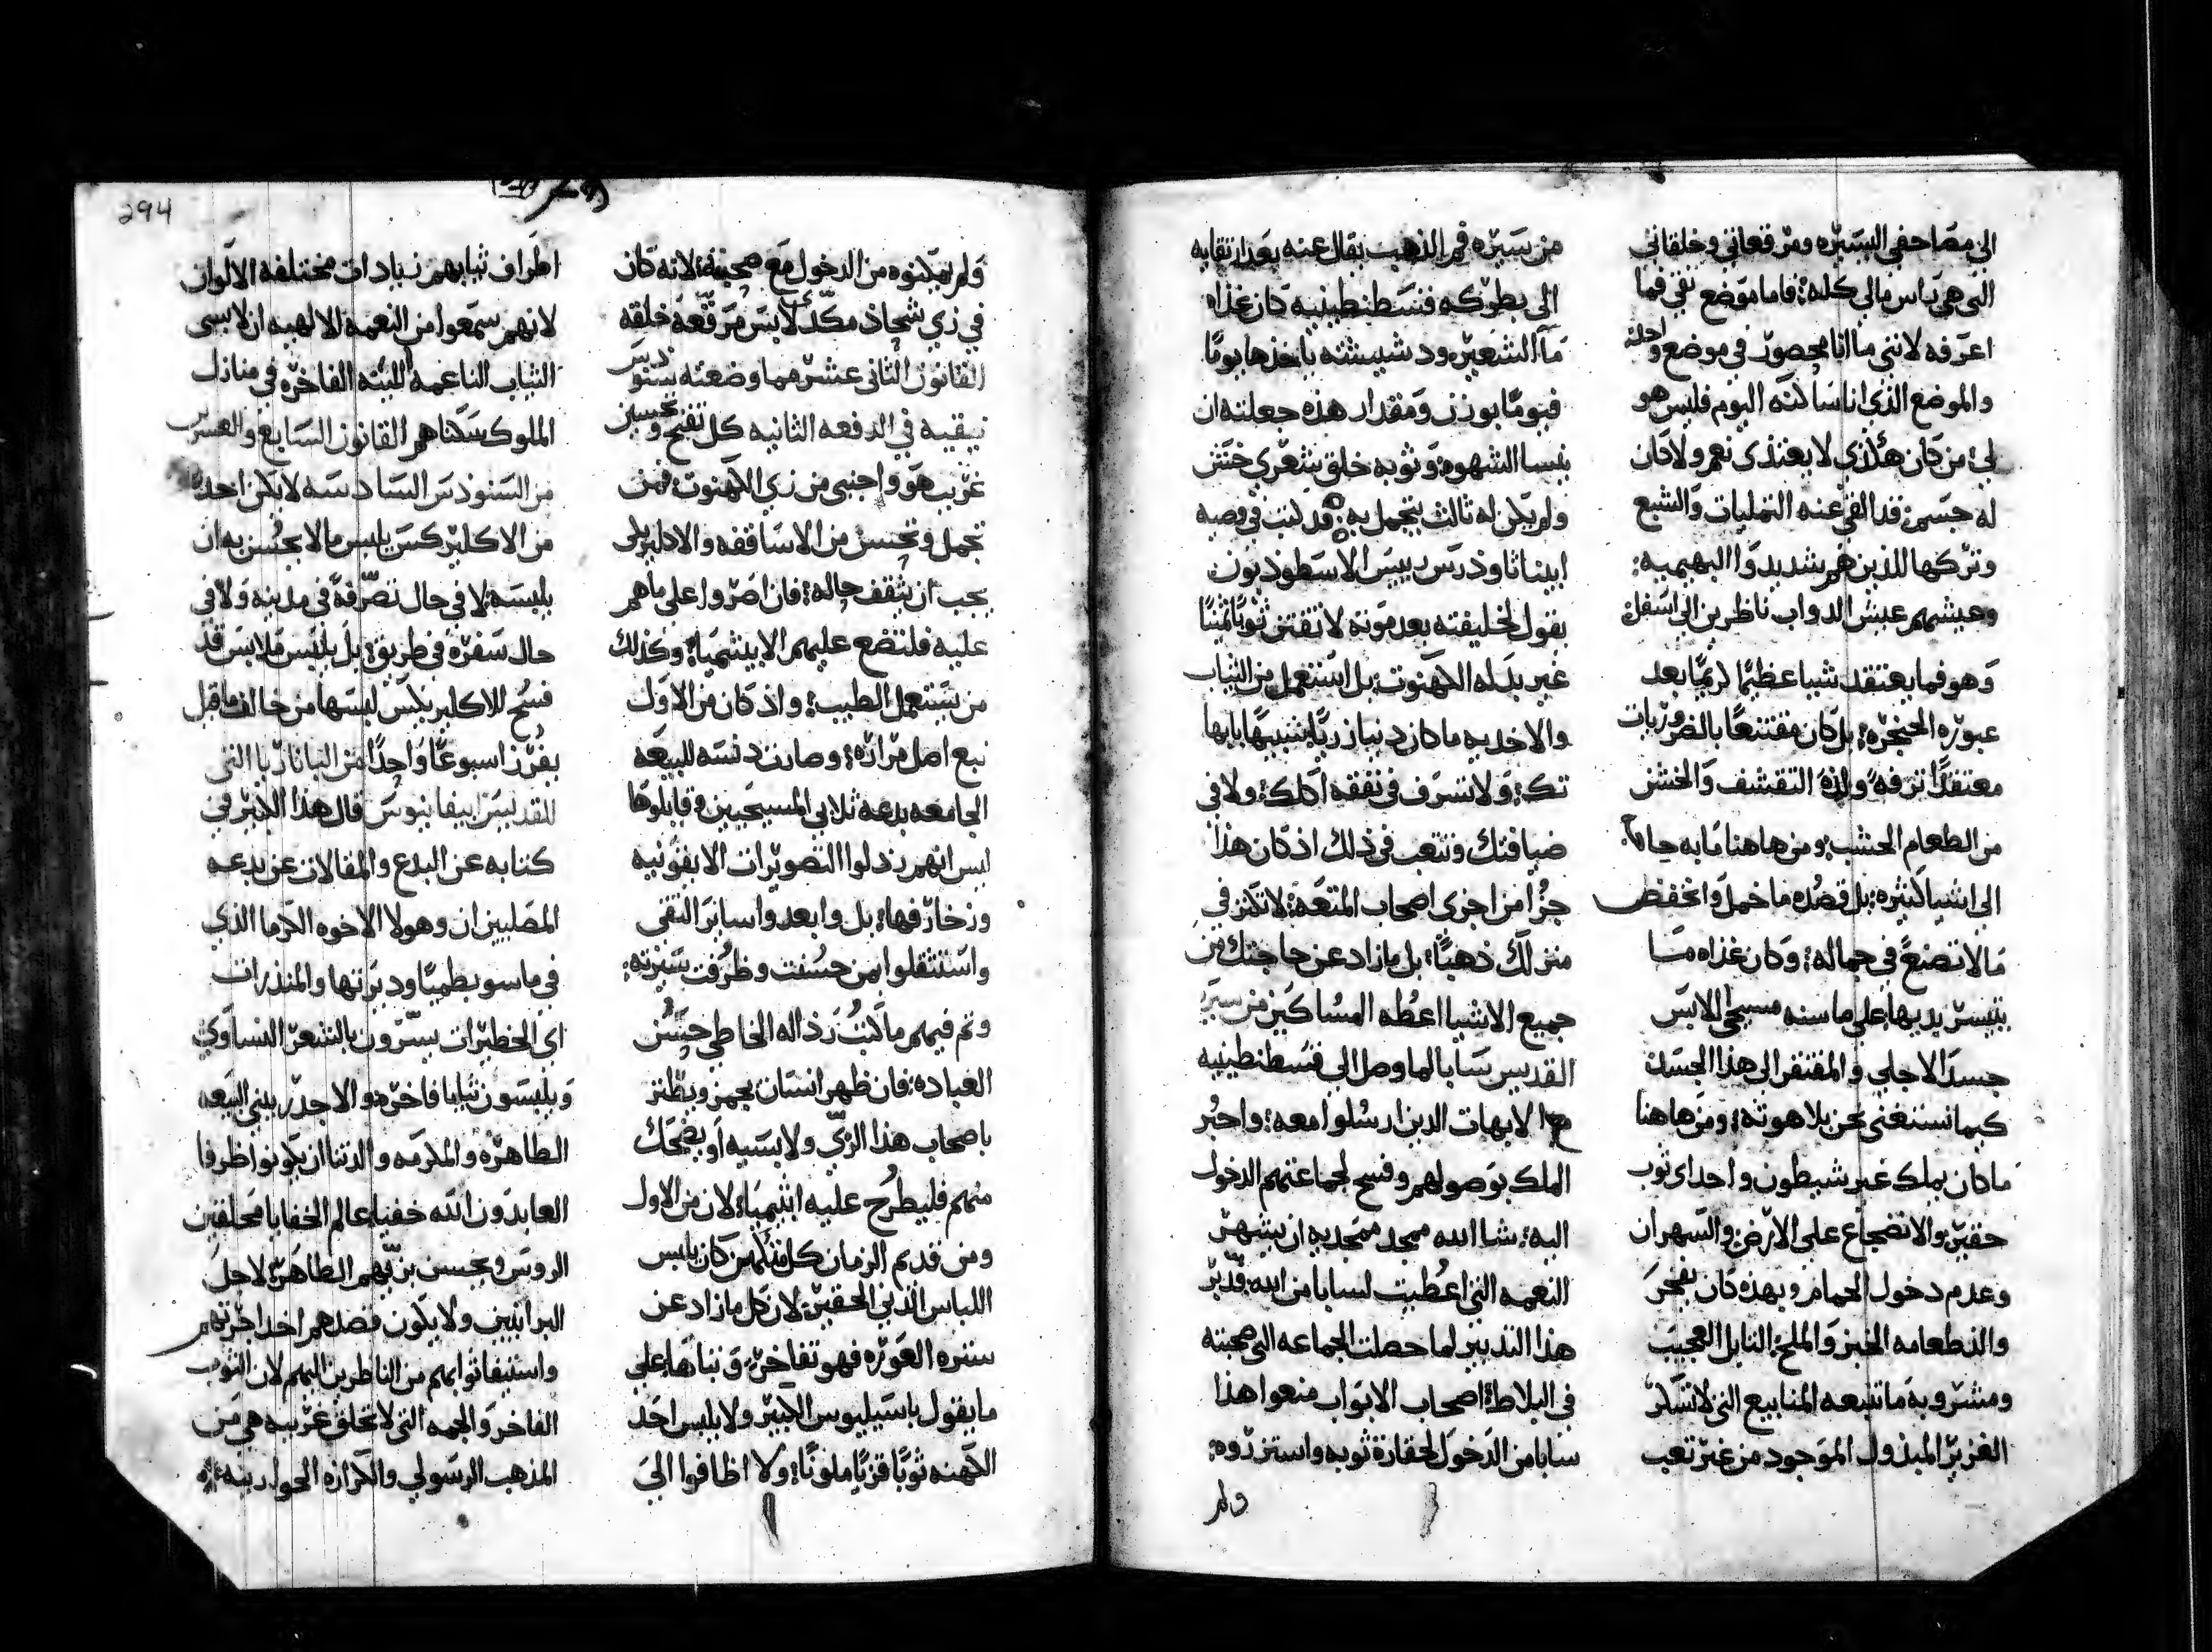 الى مصاحفي اليسيره ومرقعاتي وخلقاني
التي هي باس مالي كله؛ فاما موضع نقي فما
اعرفه لانني ما انا محصور في موضع واحد
والموضع الذي انا ساكنه اليوم فليس هو
لي؛ من كان هكذي لا يغتذى نعم ولا كان
له جسم قد القي عنه التمليات والشبع
وتركها للذين هم شديدوا البهيميه؛
وعيشهم عيش الدواب ناظرين الى اسفل
وهو فما يعتقد شيا عظيمًا كريمًا بعد
عبوره الحنجره؛ بل كان مقتنعًا بالضروريات
معتقدًا ترفهً ولذه التقشف والخشن
من الطعام الخشب؛ ومن هاهنا ما به حاجه
الى اشيا كثيره؛ بل قصده ما خمل وانخفض
ما لا تصنعً في جماله؛ وكان غذاه مسا
بتيسر يديها على ما سنه مسيحي اللابس
جسدًا لاجلي والمفتقر الى هذا الجسد
كيما نستغني نحن بلاهوته؛ ومن هاهنا
ما كان يملك غير شيطون واحد اي ثوب
حقير والانضجاع على الارض والسهران
وعدم دخول الحمام وبهذه كان يفخر
والذ طعامه الخبز والملح؛ التابل العجيب
ومشروبه ما تنبعه المنابيع التي لا تسكر
الغزير المبذول الموجود من غير تعب
من سيره فم الذهب يقال عنه بعد ارتقايه
الى بطركه قسطنطينيه كان غذاه
ما الشعير ودشيشته ياخذها يومًا
فيومًا بوزن ومقدار هذه جعلته ان
ينسا الشهوه؛ وثوبه خلق شعري خشن
ولم يكن له ثالث يتجمل به؛ قد كتب في وصيه
ابينا ثاوذرس رييس الاسطوديون
يقول لخليفته بعد موته لا تقتني ثوبًا ثمينًا
غير بدله الكهنوت؛ بل استعمل من الثياب
والاحديه ما كان دنيا زريًا شبيهًا بابها
تك؛ ولا تسرف في نفقه اكلك؛ ولا في
ضيافتك وتتعب في ذلك اذ كان هذا
جزًا من اجزى اصحاب المتعه؛ لا تكنز في
منزلك ذهبًا؛ بل ما زاد عن حاجتك من
جميع الاشيا اعطه المساكين من سيره
القديس سابا لما وصل الى قسطنطينيه
مع الابهات الذين ارسلوا معه؛ واخبر
الملك بوصولهم وفسح لجماعتهم الدخول
اليه؛ شا الله ممجد ممجديه ان يشهر
النعمه التي اعطيت لسابا من الله فدبر
هذا التدبير لما حصلت الجماعه التي صحبته
في البلاط؛ اصحاب الابواب منعوا هذا
سابا من الدخول لحقارة ثوبه واستزروه؛
ولم
294
ولم يمكنوه من الدخول مع صحبته؛ لانه كان
في زي شحاذ مكدّ لابس مرقعه خلقه
القانون الثاني عشر مما وضعته سنودس
نيقيه في الدفعه الثانيه كل تفنج وتحسين
غريب هو واجنبي من زي الكهنوت؛ فمن
تجمل وتحسن من الاساقفه والاكليريكي
يجب ان يثقف حاله؛ فان اصروا على ما هم
عليه فلتضع عليهم الابيتيميا؛ وكذلك
من يستعمل الطيب؛ واذ كان من الاول
نبع اصل مراره؛ وصارت دنسه للبيعه
الجامعه بدعه ثلابي المسيحيين وقابلوها
ليس انهم رذلوا التصويرات الايقونيه
وزخارفها؛ بل وابعدوا ساير التقى
واستثقلوا بمن حسنت وظرفت سيرته؛
وتم فيهم ما كتب رذاله الخاطي حسن
العباده؛ فان ظهر انسان يجهز ويطنز
باصحاب هذا الزي ولابسيه او يضحك
منهم فليطرح عليه ابتيميا؛ لان من الاول
ومن قديم الزمان كل متكهن كان يلبس
اللباس الدني الحقير؛ لان كل ما زاد عن
ستره العوره فهو تفاخر؛ وتباها على
ما يقول باسيليوس الكبير ولا يلبس احد
الكهنه ثوبًا قزيًا ملونًا؛ ولا اظافوا الي
اطراف ثيابهم زيادات مختلفه الالوان
لانهم سمعوا من النعمه الالهيه ان لابسي
الثياب الناعمه اللينه الفاخره في منازل
الملوك سكناهم القانون السابع والعشرين
من السنودس السادسه لا يكن احد
من الاكليركس يلبس ما لا يحسن به ان
يلبسه؛ لا في حال تصرفه في مدينه ولا في
حال سفره في طريق؛ بل يلبس ملابس قد
فسح للاكليريكس لبسها من خالف ما قيل
يفرز اسبوعًا واحدًا من الباناريا التي
للقديس ابيفانيوس قال هذا الكبير في
كتابه عن البدع والمقالات عن بدعه
المصليين ان وهولا الاخوه الكرما الذي
في ماسوبطميا وديرتها والمنذرات
اي الخطيرات يسترون بالشعر النساوي
ويلبسون ثيابا فاخره؛ والاجدر ببني البيعه
الطاهره والمكرمه والدتنا ان يكونوا ظرفا
العابدون الله خفيا عالم الخفايا محلقين
الروس ويحسن بزيّهم الطاهر؛ لا لاجل
البرانيين ولا يكون قصدهم اخد اجرتهم
واستيفا ثوابهم من الناظرين اليهم لان الثوب
الفاخر والجمه التي لا تحلق غريبه هي من
المذهب الرسولي والكرازه الحواريه؛